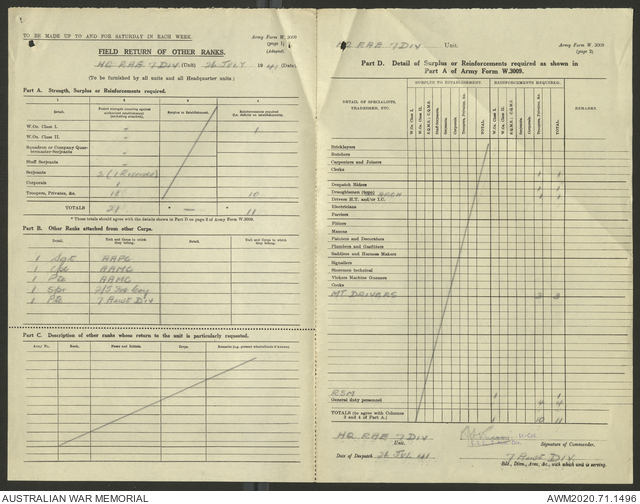 TO BE MADE UP TO AND FOR SATURDAY IN EACH WEEK.
Army Form W. 3009
(page 1)
(Adapted)
FIELD RETURN OF OTHER RANKS.
HQ RAE 7 DIV (Unit) 26 JULY 1941 (Date)
(To be furnished by all units and all Headquarter units.)
Part A. Strength, Surplus or Reinforcements required.
1 2 3 4
Detail.
Surplus to Establishment.
Reinforcements required
W.Os. Class I. " 1
W.Os. Class II. "
Squadron or Company Quartermaster-Serjeants "
Staff Serjeants "
Serjeants 2 (1 Records)
Corporals
Troopers, Privates, &c. 18 10
TOTALS 21 * 11
* These totals should agree with the details shown in Part D on page 2 of Army Form W.3009.
Part B. Other Ranks attached from other Corps.
Detail. Unit and Corps to which they belong. Detail. Unit and Corps to which they belong.
1 Sgt AAPC
1 Cpl AAMC
1 Pte AAMC
1 Spr 2/5 Fd Coy
1 Pte 7 Aust Div
Part C. Description of other ranks whose return to the unit is particularly requested.
Army No. Rank. Name and Initials. Corps. Remarks (e.g. present whereabouts if known).
HQ RAE 7 DIV Unit.
Army Form W. 3009
(page 2)
Part D. Detail of Surplus or Reinforcements required as shown in
Part A of Army Form W.3009.
SURPLUS TO ESTABLISHMENT. REINFORCEMENTS REQUIRED.
DETAIL OF SPECIALISTS, TRADESMEN, ETC.
W.Os. Class I. W.Os. Class II. S.Q.M.S.; C.Q.M.S. Staff-Serjeants. Serjeants. Corporals. Troopers, Privates, &c. TOTAL.
W.Os. Class I. W.Os. Class II. S.Q.M.S.; C.Q.M.S. Staff-Serjeants. Serjeants. Corporals. Troopers, Privates, &c. TOTAL.
REMARKS.
Bricklayers
Butchers
Carpenters and Joiners
Clerks 1 1
Despatch Riders
Draughtsmen (topo) ARCH 1 1
Drivers H.T. and/or I.C.
Electricians
Farriers
Fitters
Masons
Painters and Decorators
Plumbers and Gasfitters
Saddlers and Harness Makers
Signallers
Storemen technical
Vickers Machine Gunners
Cooks
MT DRIVERS 3 3
RSM 1 1
General duty personnel 4 4
TOTALS (to agree with Columns 3 and 4 of Part A.) 1 10 11
HQ RAE 7 DIV
Unit.
Signature of Commander.
Date of Despatch 26 JUL 41
7 Aust DIV
Bdd., Divn., Area, &c., with which unit is serving.
AUSTRALIAN WAR MEMORIAL
AWM2020.71.1496